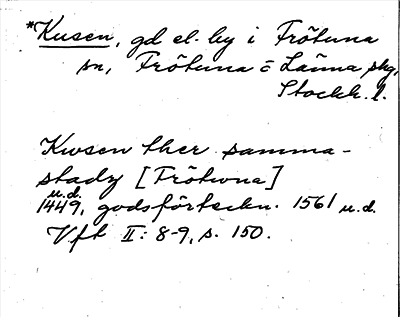 *Kusen, gd el. by i Frötuna
sn, Frötuna o Länna skg,
Stockh. l.
Kwsen ther samma-
stadz [Frötwna]
u.d.
1449, godsförteckn. 1561 u.d.
Vft II: 8-9, s. 150.